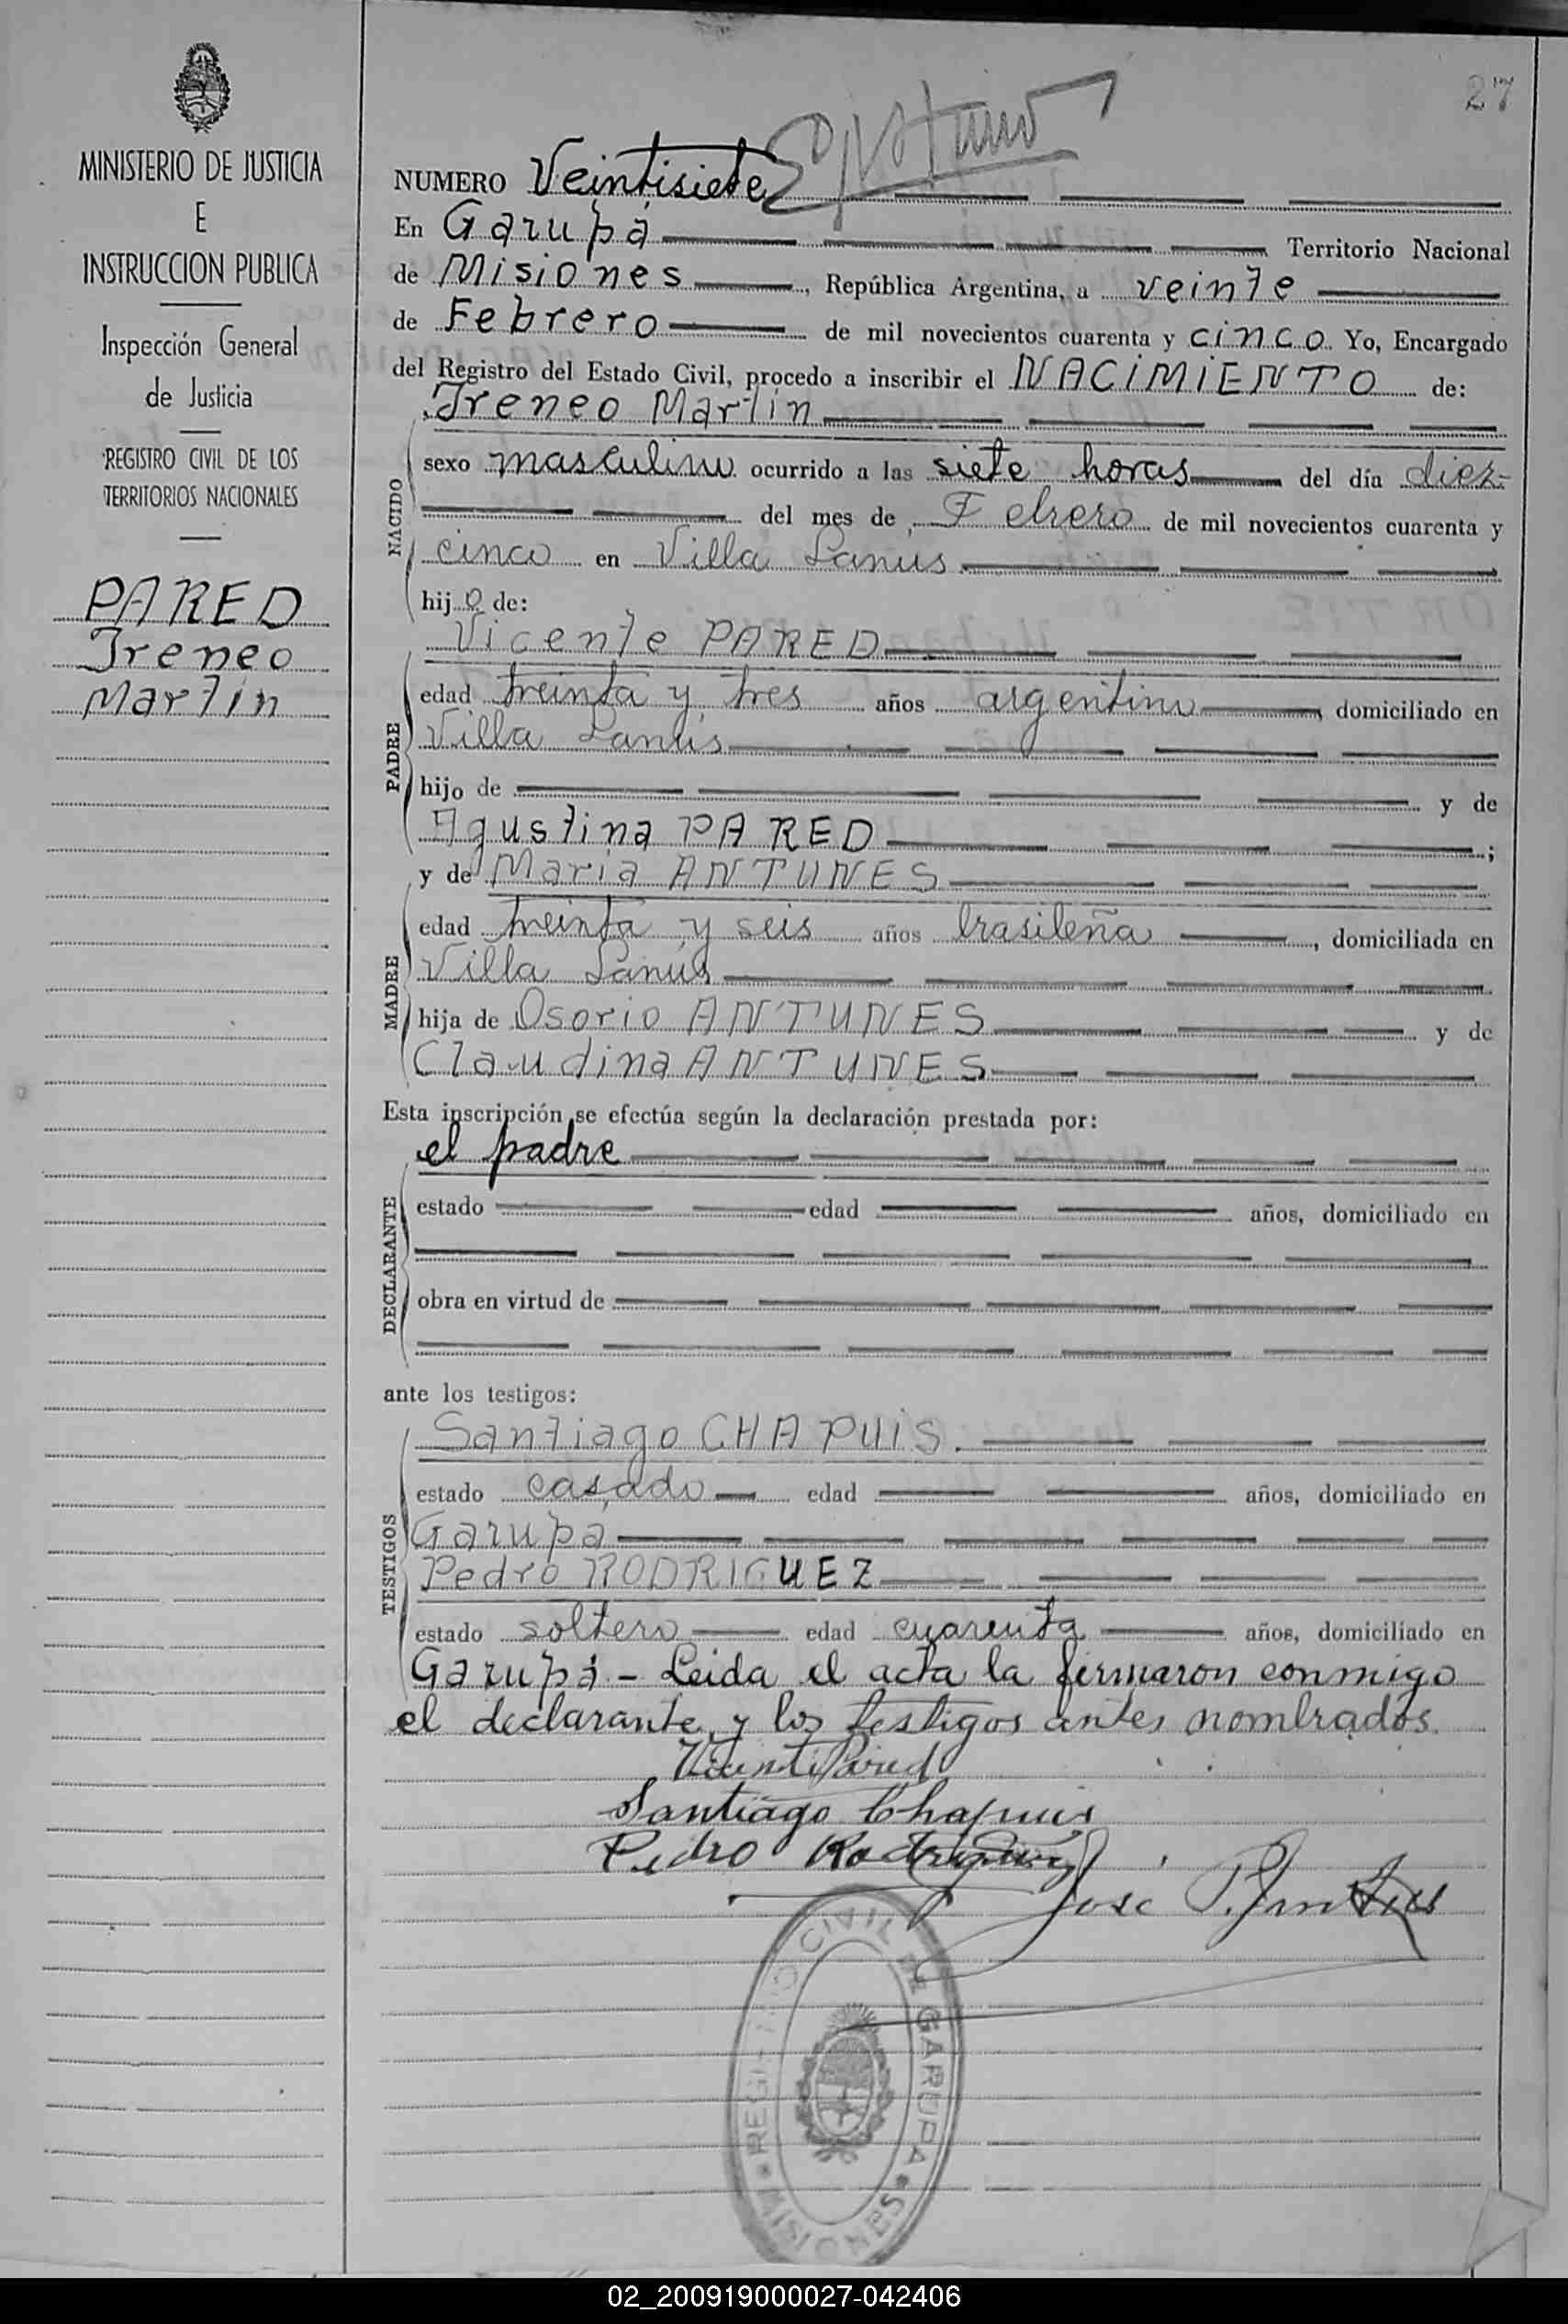 27
MINISTERIO DE JUSTICIA
E
INSTRUCCION PUBLICA
Inspección General
de Justicia
REGISTRO CIVIL DE LOS
TERRITORIOS NACIONALES
PARED
Ireneo
Martin
NUMERO Veintisiete
En Garupá Territorio Nacional
de Misiones, República Argentina, a veinte
de Febrero de mil novecientos cuarenta y cinco Yo, Encargado
del Registro del Estado Civil, procedo a inscribir el NACIMIENTO de:
Ireneo Martin
NACIDO
sexo masculino ocurrido a las siete horas del día diez
del mes de Febrero de mil novecientos cuarenta y
cinco en Villa Lanus
hijo de:
Vicente PARED
PADRE
edad treinta y tres años argentino, domiciliado en
Villa Lanús
hijo de y de
Agustina PARED;
y de Maria ANTUNES
MADRE
edad treinta y seis años brasileña, domiciliada en
Villa Lanús
hija de Osorio ANTUNES y de
Claudina ANTUNES
Esta inscripción se efectúa según la declaración prestada por:
el padre
DECLARANTE
estado edad años, domiciliado en
obra en virtud de
ante los testigos:
Santiago CHAPUIS.
TESTIGOS
estado casado edad años, domiciliado en
Garupá
Pedro RODRIGUEZ
estado soltero edad cuarenta años, domiciliado en
Garupá - Leida el acta la firmaron conmigo
el declarante y los testigos antes nombrados.
Vicente Pared
Santiago Chapuis
Pedro Rodriguez
Jose P.
REGISTRO CIVIL DE GARUPA
MISIONES
02_200919000027-042406